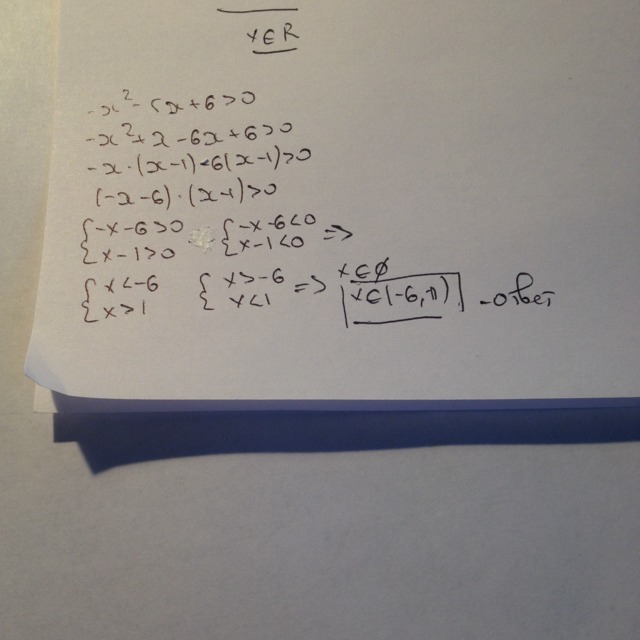 x∈R
-x² - 5x + 6 > 0
-x² + x - 6x + 6 > 0
-x · (x-1) - 6(x-1) > 0
(-x-6) · (x-1) > 0
{ -x-6>0 { -x-6<0 =>
{ x-1>0 { x-1<0
x∈∅
{ x<-6 { x>-6 => x∈(-6,1) - ответ
{ x>1 { x<1